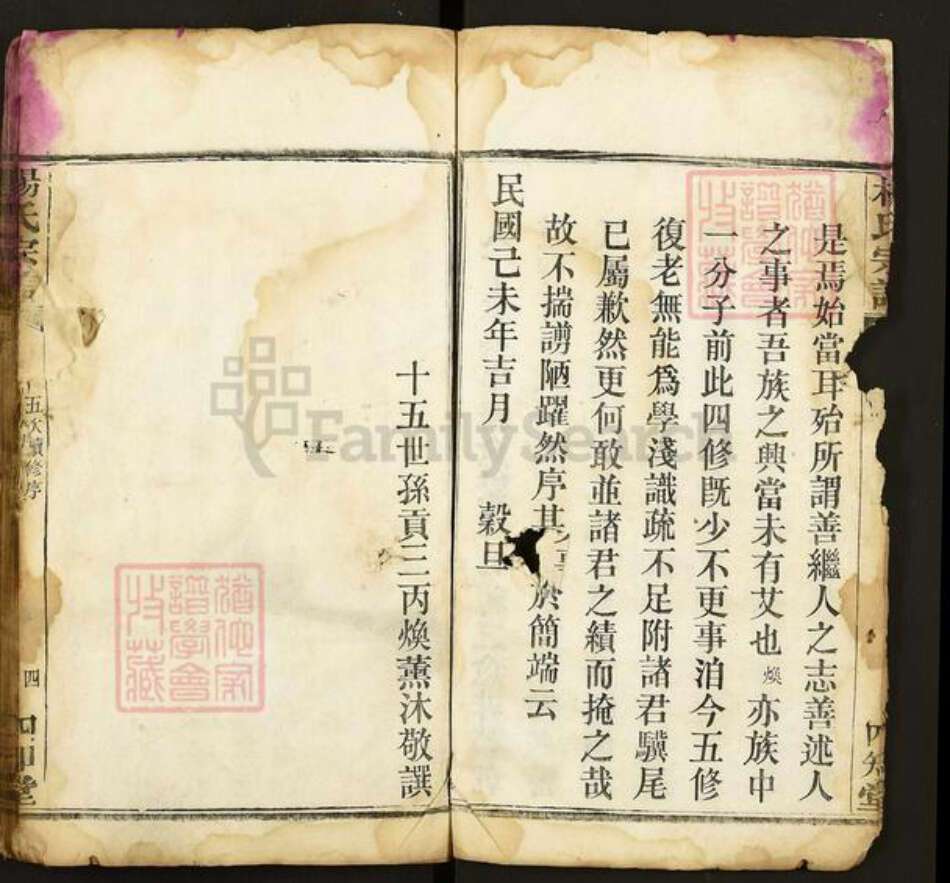 是焉始當耳殆所謂善繼人之志善述人
之事者吾族之興當未有艾也煥亦族中
一分子前此四修旣少不更事洎今五修
復老無能爲學淺識疏不足附諸君驥尾
已屬歉然更何敢並諸君之績而掩之哉
故不揣謭陋躍然序其於簡端云
民國己未年吉月 穀旦
十五世孫貢三丙煥薰沐敬譔
楊氏宗
五次續修序
四
堂
氏宗譜
知堂
猶他家譜學會收藏
猶他家譜學會收藏
FamilySearch